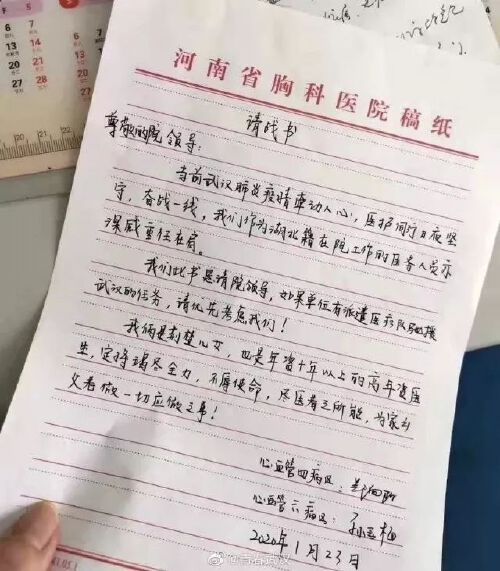 河南省胸科医院稿纸
请战书
尊敬的院领导：
当前武汉肺炎疫情牵动人心，医护同行日夜坚
守，奋战一线，我们作为湖北籍在院工作的医务人员亦
深感重任在肩。
我们此书恳请院领导，如果单位有派遣医疗队驰援
武汉的任务，请优先考虑我们！
我俩是荆楚儿女，也是年资十年以上的高年资医
生，定将竭尽全力，不辱使命，尽医者之所能，为家乡
父老做一切应做之事！
心血管四病区：
心血管六病区：
2020年1月23日
6 7 8
13 14 15
20 21 22
27 28
@青春武汉